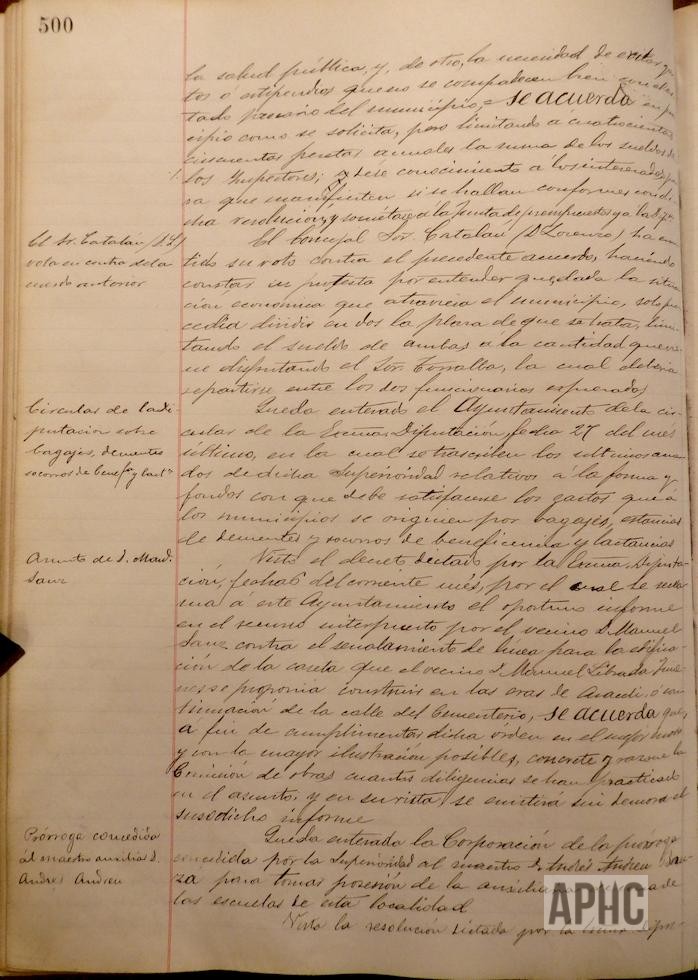 500
la salud pública, y, de otro, la necesidad de evitar
tos ó estipendios que no se compadecen bien con el
tado precario del municipio, se acuerda en prin
cipio como se solicita, pero limitando á cuatrocientas
cincuenta pesetas anuales la suma de los sueldos de
los Inspectores; y dése conocimiento á los interesados pa
ra que manifiesten si se hallan conformes con di
cha resolución, y sométase á la Junta de presupuestos
El Sr. Catalán (D. L.)
vota en contra del a
cuerdo anterior
El Concejal Sor. Catalán (D. Lorenzo) ha emi
tido su voto contra el precedente acuerdo, haciendo
constar su protesta por entender que, dada la situa
ción economica que atraviesa el municipio, solo pro
cedía dividir en dos la plaza de que se trata, limi
tando el sueldo de ambas á la cantidad que vie
ne disfrutando el Sor. Torralba, la cual debería
repartirse entre los dos funcionarios expresados
Circular de la Di
putacion sobre
bagajes, dementes
socorros de benefa. y lacta.
Queda enterado el Ayuntamiento de la cir
cular de la Excma. Diputación, fecha 27 del mes
último, en la cual se trascriben los ultimos acuer
dos de dicha Superioridad relativos á la forma y
fondos con que debe satisfacerse los gastos que á
los municipios se originen por bagajes, estancias
de dementes y socorros de beneficencia y lactancias
Asunto de D. Manl.
Sanz
Visto el decreto dictado por la Excma. Diputa
ción, fecha 6 del corriente mes, por el cual se recla
ma á este Ayuntamiento el oportuno informe
en el recurso interpuesto por el vecino D. Manuel
Sanz contra el señalamiento de linea para la edifica
ción de la caseta que el vecino D. Manuel Librada Jime
nez se proponia construir en las eras de ó con
tinuación de la calle del Cementerio, se acuerda que,
a fin de cumplimentar dicha orden en el mejor modo
y con la mayor ilustración posibles, concrete y razone la
Comisión de obras cuantas diligencias se han practicado
en el asunto, y en su vista, se emitirá sin demora el
susodicho informe
Prórroga concedida
al maestro auxiliar D.
Andrés Andreu
Queda enterada la Corporación de la prórroga
concedida por la Superioridad al maestro D. Andrés Andreu
za para tomar posesión de la auxiliaria de
las escuelas de esta localidad
Vista la resolución dictada por la Excma. Dipu-
APHC